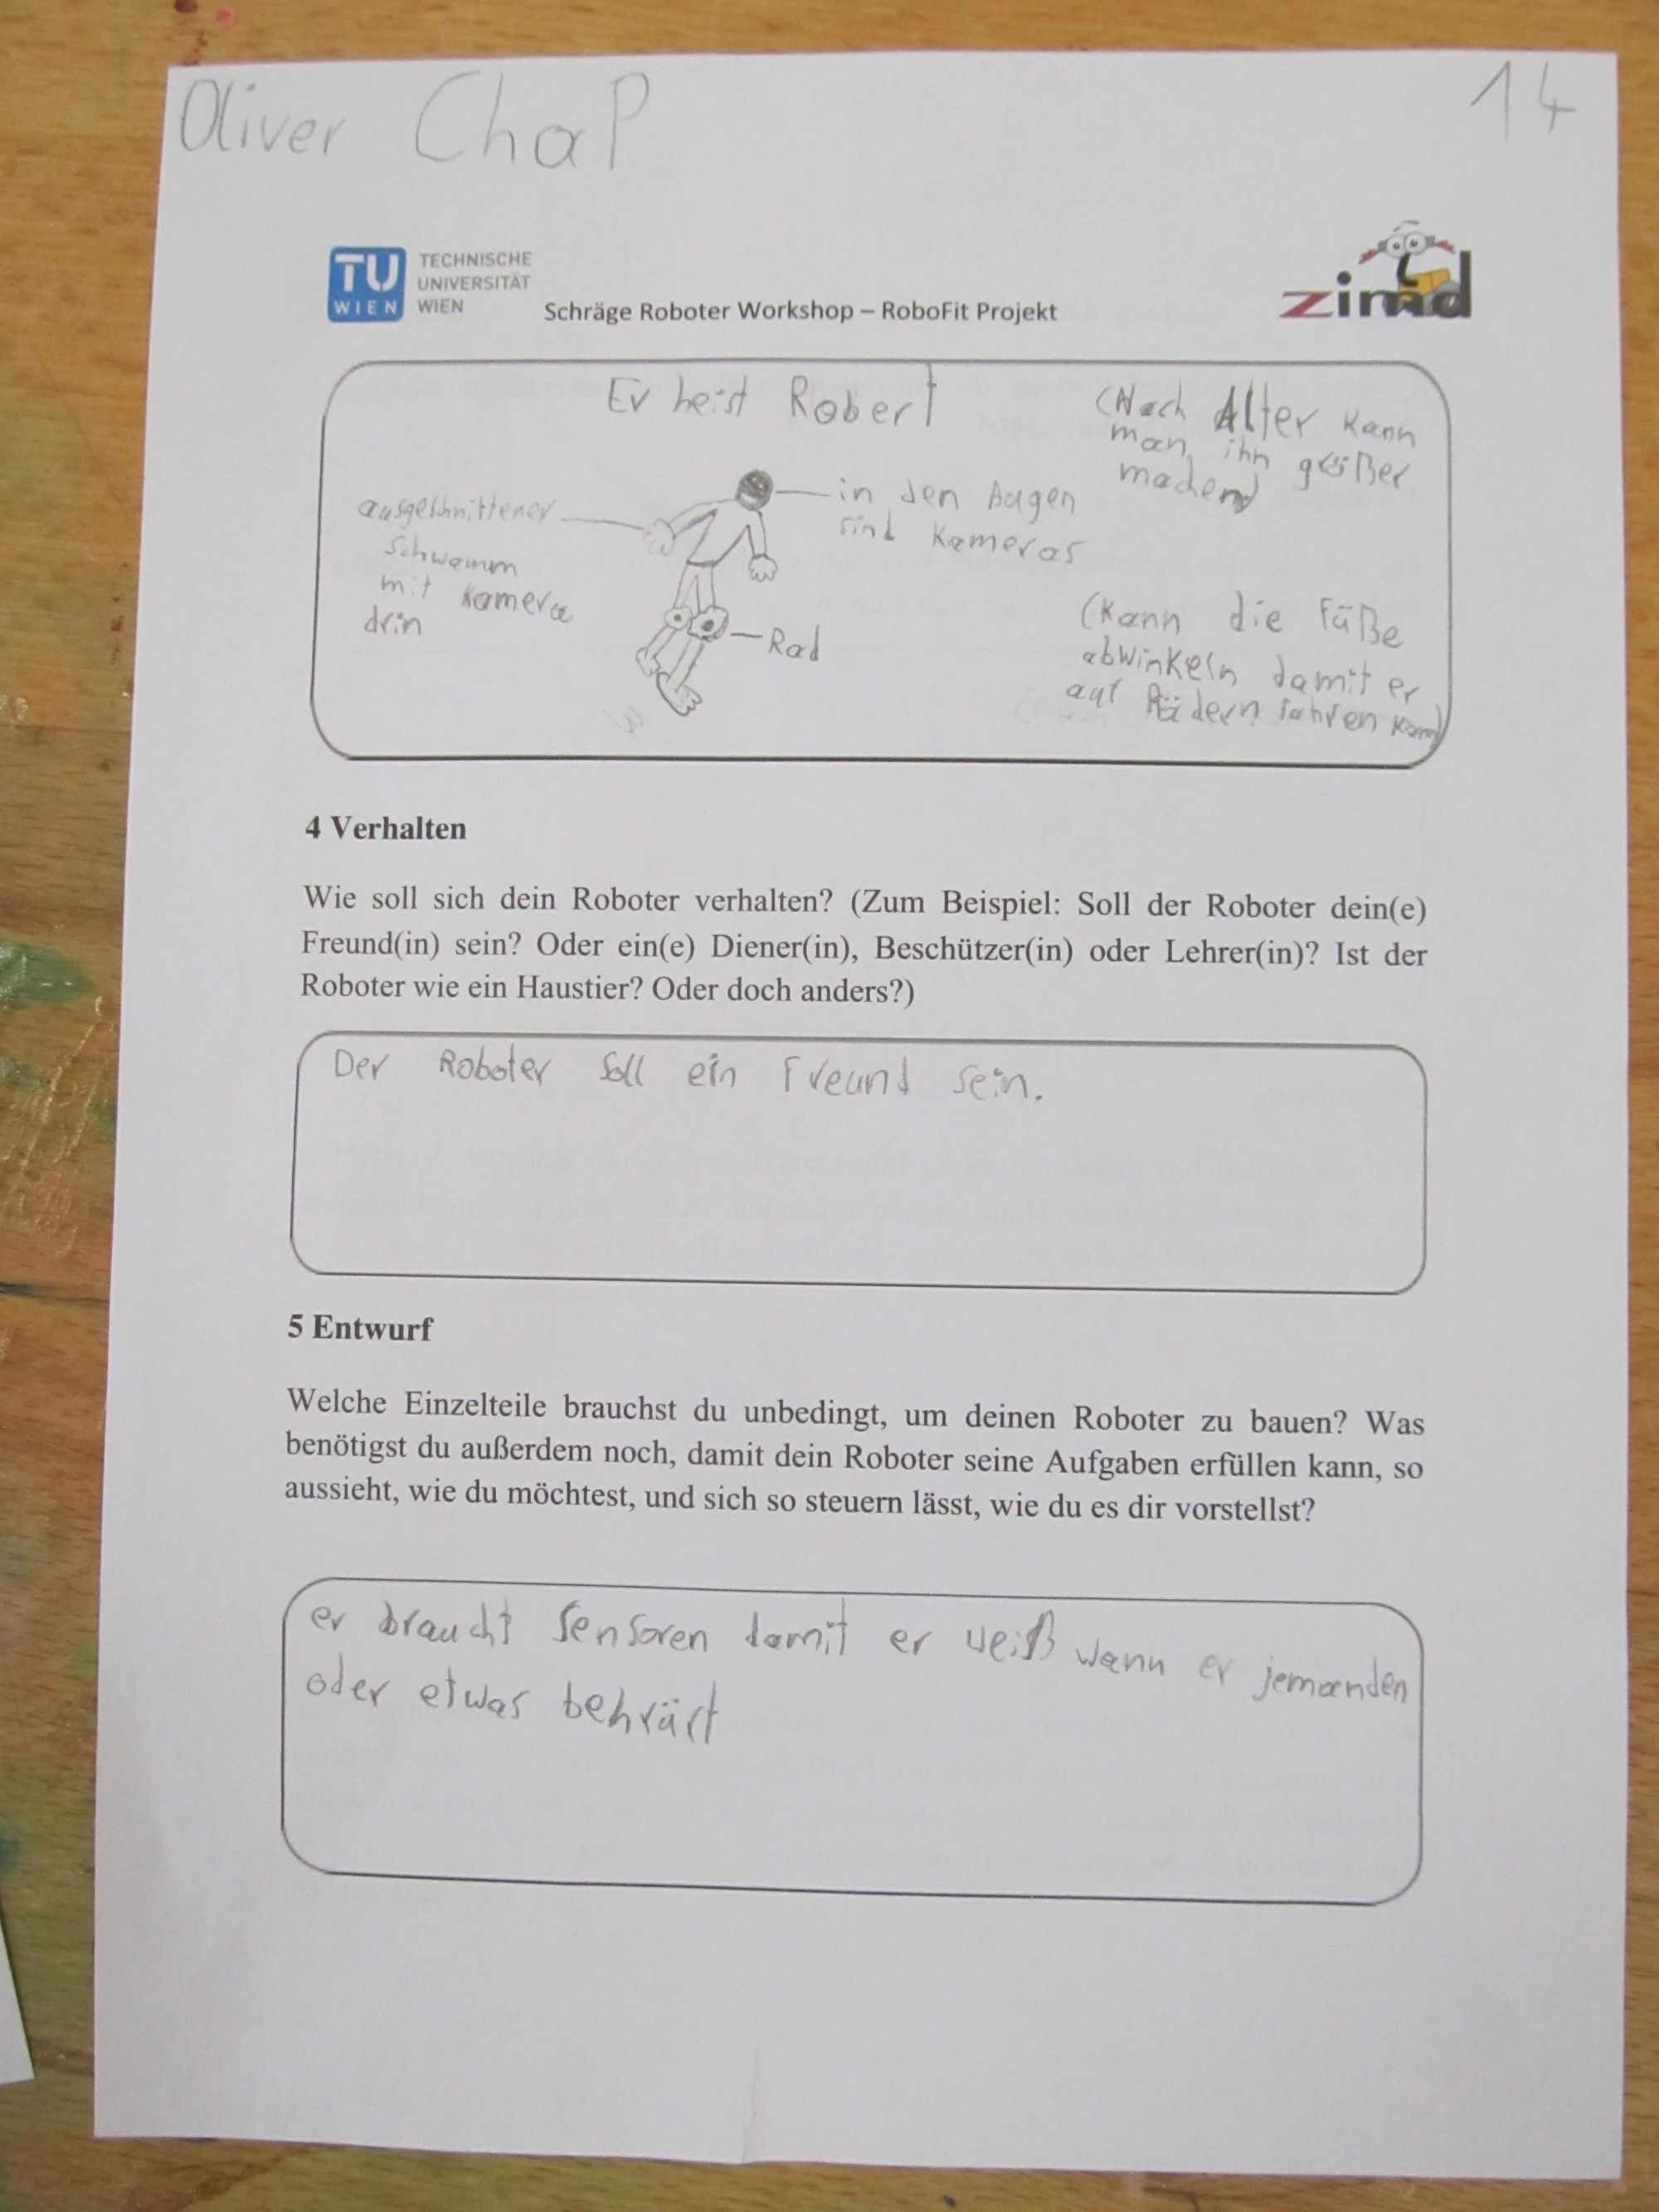 Oliver ChaP
14
TU
WIEN
TECHNISCHE
UNIVERSITÄT
WIEN
Schräge Roboter Workshop – RoboFit Projekt
zimd
Er heist Robert
(Nach Alter kann
man ihn größer
machen)
ausgeschnittener
Schwamm
mit Kamera
drin
in den Augen
sind Kameras
Rad
(Kann die Füße
abwinkeln damit er
auf Rädern fahren kann)
4 Verhalten
Wie soll sich dein Roboter verhalten? (Zum Beispiel: Soll der Roboter dein(e)
Freund(in) sein? Oder ein(e) Diener(in), Beschützer(in) oder Lehrer(in)? Ist der
Roboter wie ein Haustier? Oder doch anders?)
Der Roboter soll ein Freund sein.
5 Entwurf
Welche Einzelteile brauchst du unbedingt, um deinen Roboter zu bauen? Was
benötigst du außerdem noch, damit dein Roboter seine Aufgaben erfüllen kann, so
aussieht, wie du möchtest, und sich so steuern lässt, wie du es dir vorstellst?
er braucht Sensoren damit er weiß wann er jemanden
oder etwas behrürt